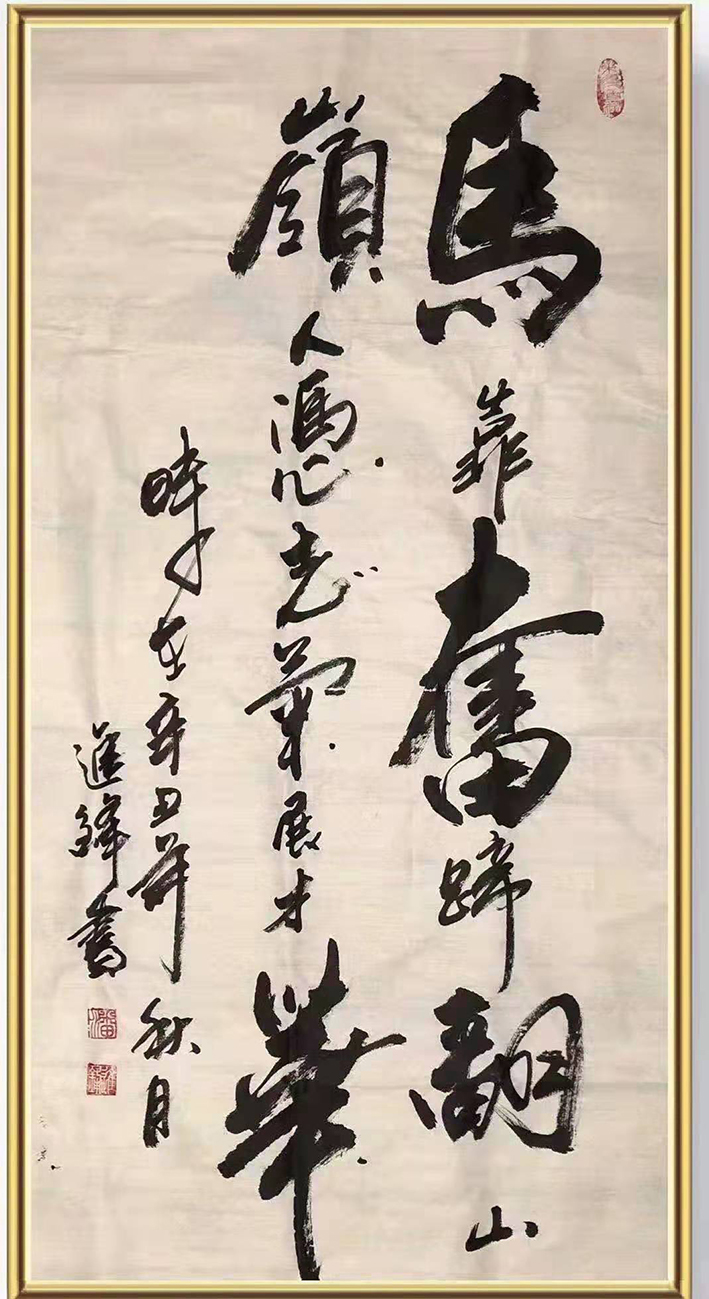 馬靠奮蹄翻山
嶺人憑志氣展才華
時在辛丑年秋月
進鋒書